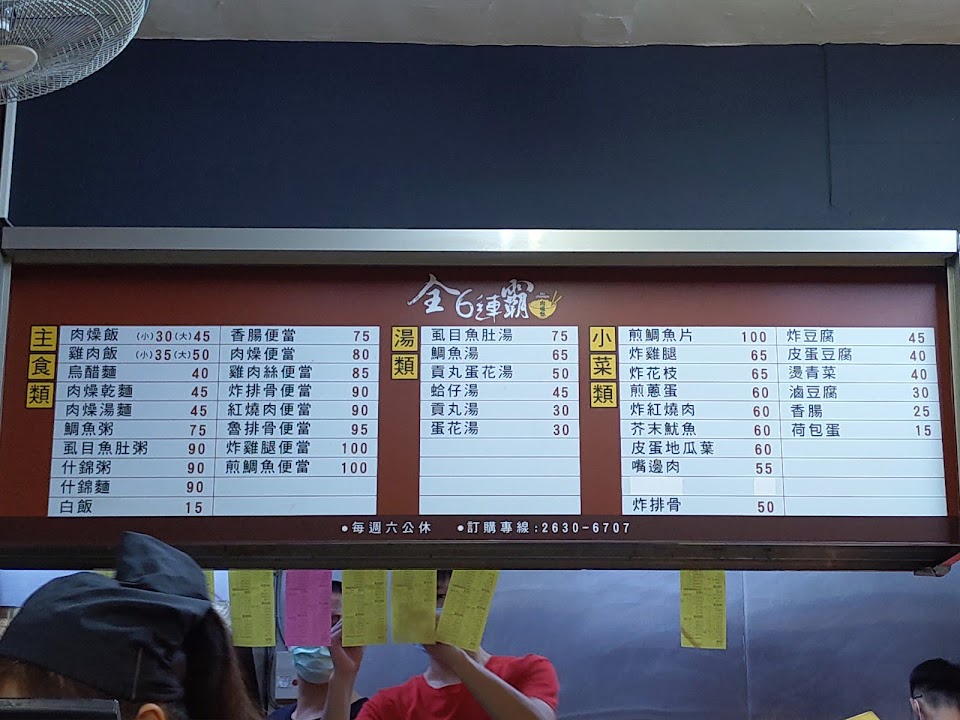 全6連霸
肉燥飯
主食類
肉燥飯 (小)30(大)45
雞肉飯 (小)35(大)50
烏醋麵 40
肉燥乾麵 45
肉燥湯麵 45
鯛魚粥 75
虱目魚肚粥 90
什錦粥 90
什錦麵 90
白飯 15
香腸便當 75
肉燥便當 80
雞肉絲便當 85
炸排骨便當 90
紅燒肉便當 90
魯排骨便當 95
炸雞腿便當 100
煎鯛魚便當 100
湯類
虱目魚肚湯 75
鯛魚湯 65
貢丸蛋花湯 50
蛤仔湯 45
貢丸湯 30
蛋花湯 30
小菜類
煎鯛魚片 100
炸雞腿 65
炸花枝 65
煎蔥蛋 60
炸紅燒肉 60
芥末魷魚 60
皮蛋地瓜葉 60
嘴邊肉 55
炸排骨 50
炸豆腐 45
皮蛋豆腐 40
燙青菜 40
滷豆腐 30
香腸 25
荷包蛋 15
●每週六公休 ●訂購專線:2630-6707